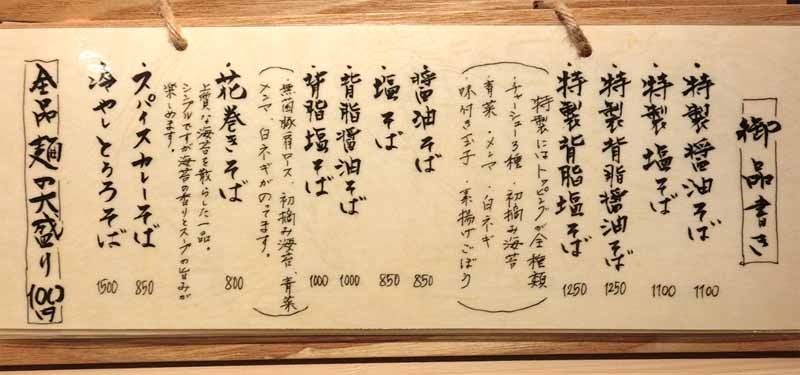 御品書き
・特製醤油そば 1100
・特製塩そば 1100
・特製背脂醤油そば 1250
・特製背脂塩そば 1250
特製にはトッピングが全種類
・チャーシュー3種・初摘み海苔
・青菜・メンマ・白ネギ
・味付き玉子・素揚げごぼう
・醤油そば 850
・塩そば 850
・背脂醤油そば 1000
・背脂塩そば 1000
無菌豚肩ロース、初摘み海苔、青菜
メンマ、白ネギがのってます。
・花巻きそば 800
上質な海苔を散らした一品。
シンプルですが海苔の香りとスープの旨みが
楽しめます。
・スパイスカレーそば 850
・冷やしとろろそば 1500
全品麺の大盛り100円